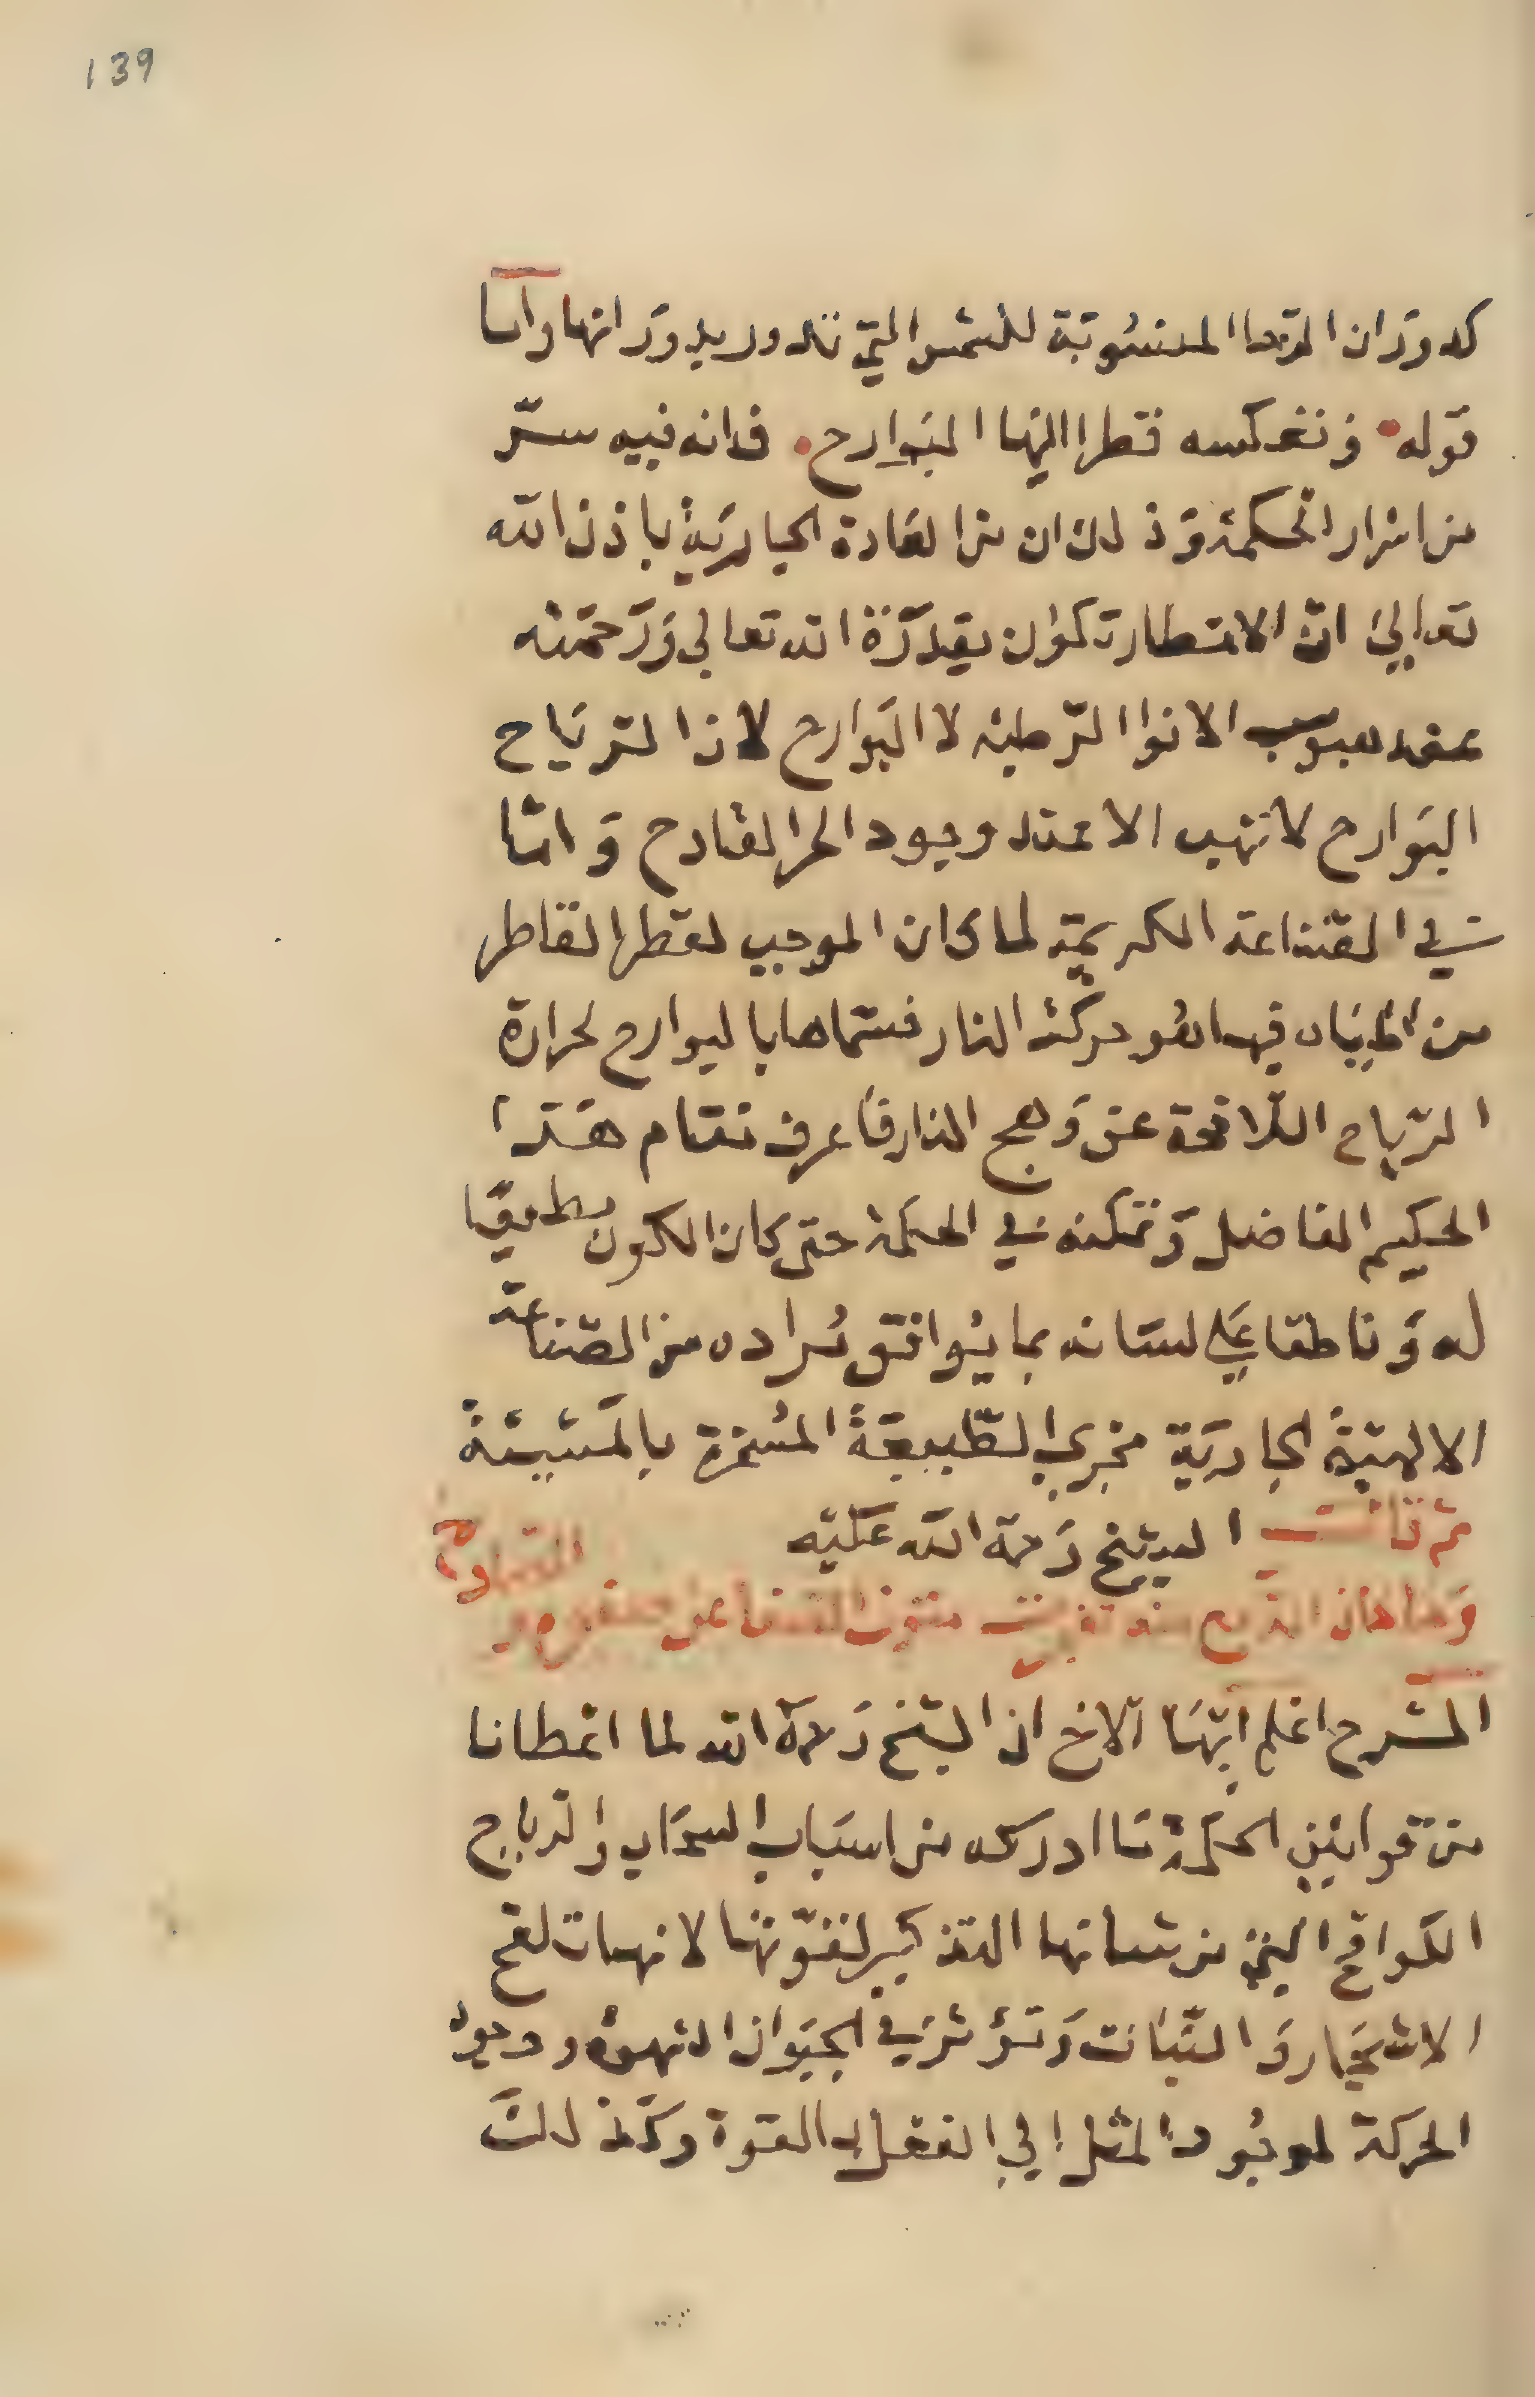 139
كدوران الرحا المنسوبة للشمس التي تدور بدورانها واما
قوله وتعكسه قطرا اليها البوارح فانه فيه سرّ
من اسرار الحكمة وذلك ان من العادة الجارية باذن الله
تعالى انّ الامطار تكون بقدرة الله تعالى ورحمته
عند هبوب الانوا الرّطبة لا البوارح لان الرياح
البوارح لا تهب الا عند وجود الحر القادح وامّا
في الصناعة الكريمة لما كان الموجب لقطر القاطر
من المياه فيها هو حركة النار فسماها بالبوارح لحرارة
الرّياح اللافحة عن وهج النار فاعرف مقام هذا
الحكيم الفاضل وتمكنه في الحكمة حتى كان الكون مطيعًا
له وناطقا على لسانه بما يوافق مُراده من الصّناعة
الالهيّة الجارية مجرى الطّبيعة المسخرة بالمشيئة
ثم قال الشيخ رحمة الله عليه
الشرح اعلم ايّها الاخ ان الشيخ رحمة الله لما اعطانا
من قوانين الحكمة ما ادركه من اسباب السحاب والرياح
اللواقح التي من شانها التذكير لقوّتها لانها تلقح
الاشجار والنّبات وتؤثر في الحيوان الشهوة ووجود
الحركة لموجود المثل الى الفعل بالقوة وكذلك